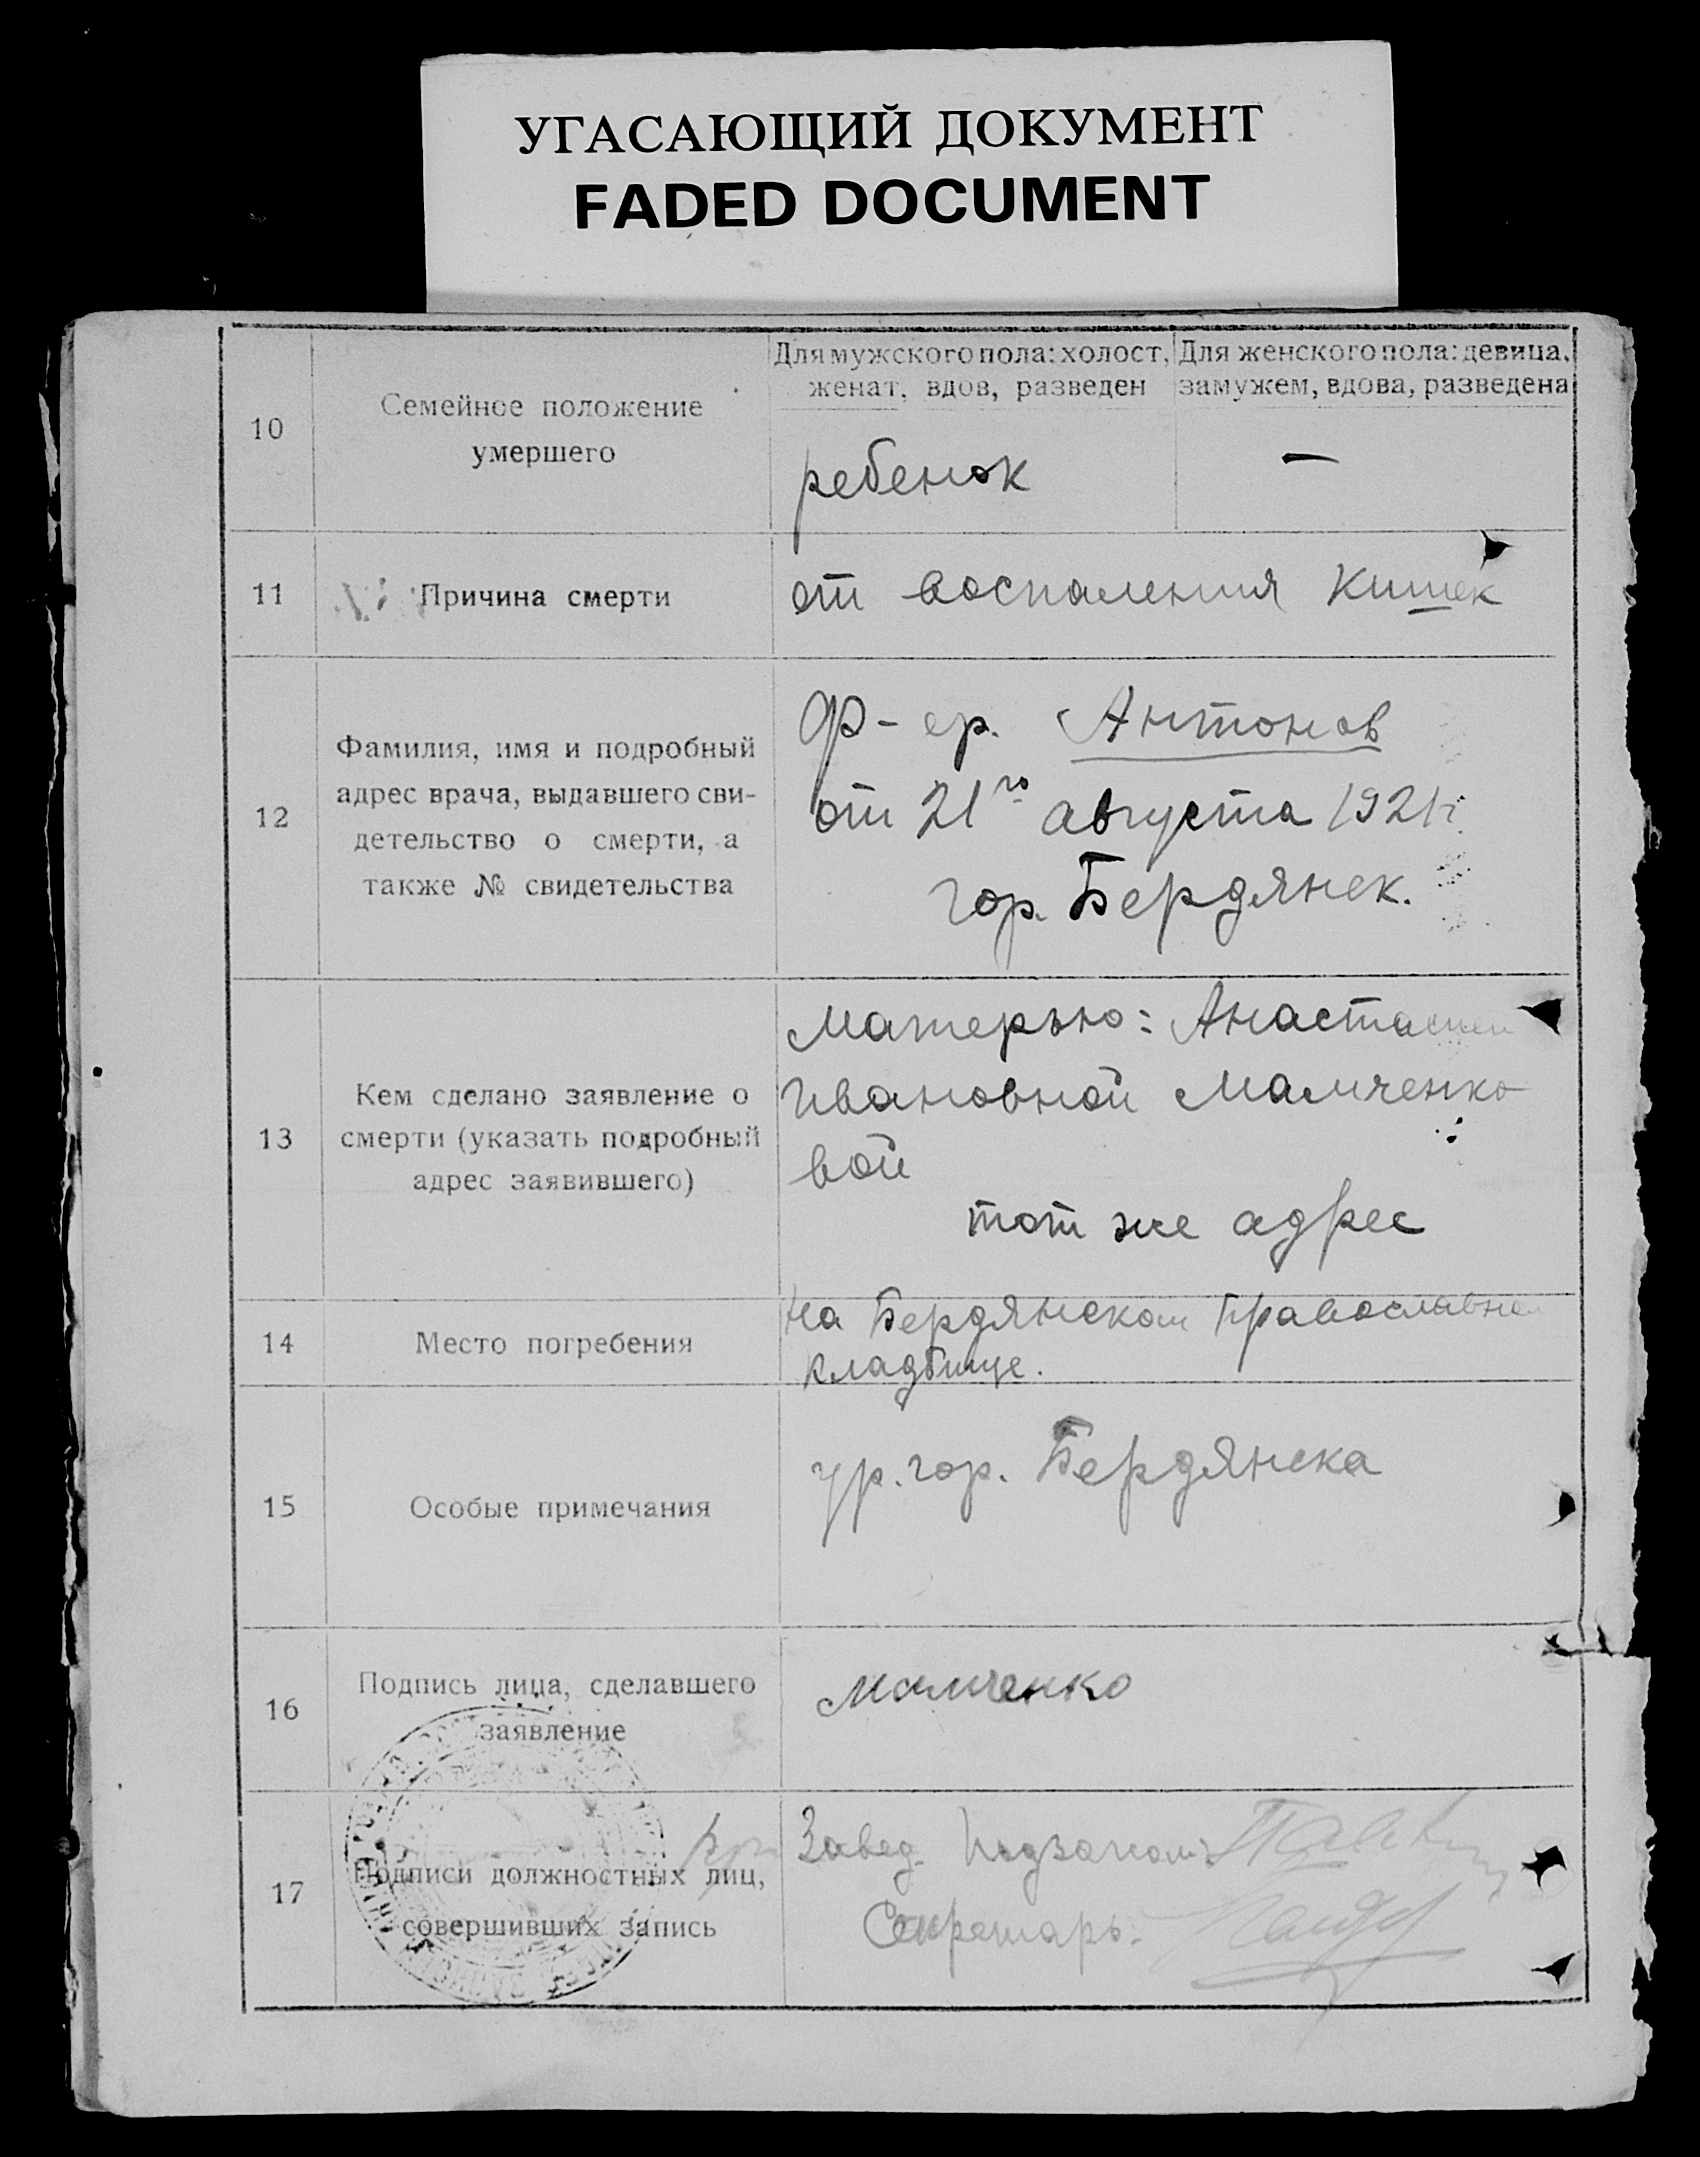 УГАСАЮЩИЙ ДОКУМЕНТ
FADED DOCUMENT
10
Семейное положение
умершего
Для мужского пола: холост,
женат, вдов, разведен
Для женского пола: девица,
замужем, вдова, разведена
ребенок
—
11
Причина смерти
от воспаления кишек
12
Фамилия, имя и подробный
адрес врача, выдавшего сви-
детельство о смерти, а
также № свидетельства
Ф-ер. Антонов
от 21го августа 1921г.
гор. Бердянск.
13
Кем сделано заявление о
смерти (указать подробный
адрес заявившего)
Матерью: Анастасией
Ивановной Мамченко
вой
тот же адрес
14
Место погребения
На Бердянском Православно
кладбище.
15
Особые примечания
ур. гор. Бердянска
16
Подпись лица, сделавшего
заявление
Мамченко
17
Подписи должностных лиц,
совершивших запись
Завед. Подзагсом:
Секретарь: